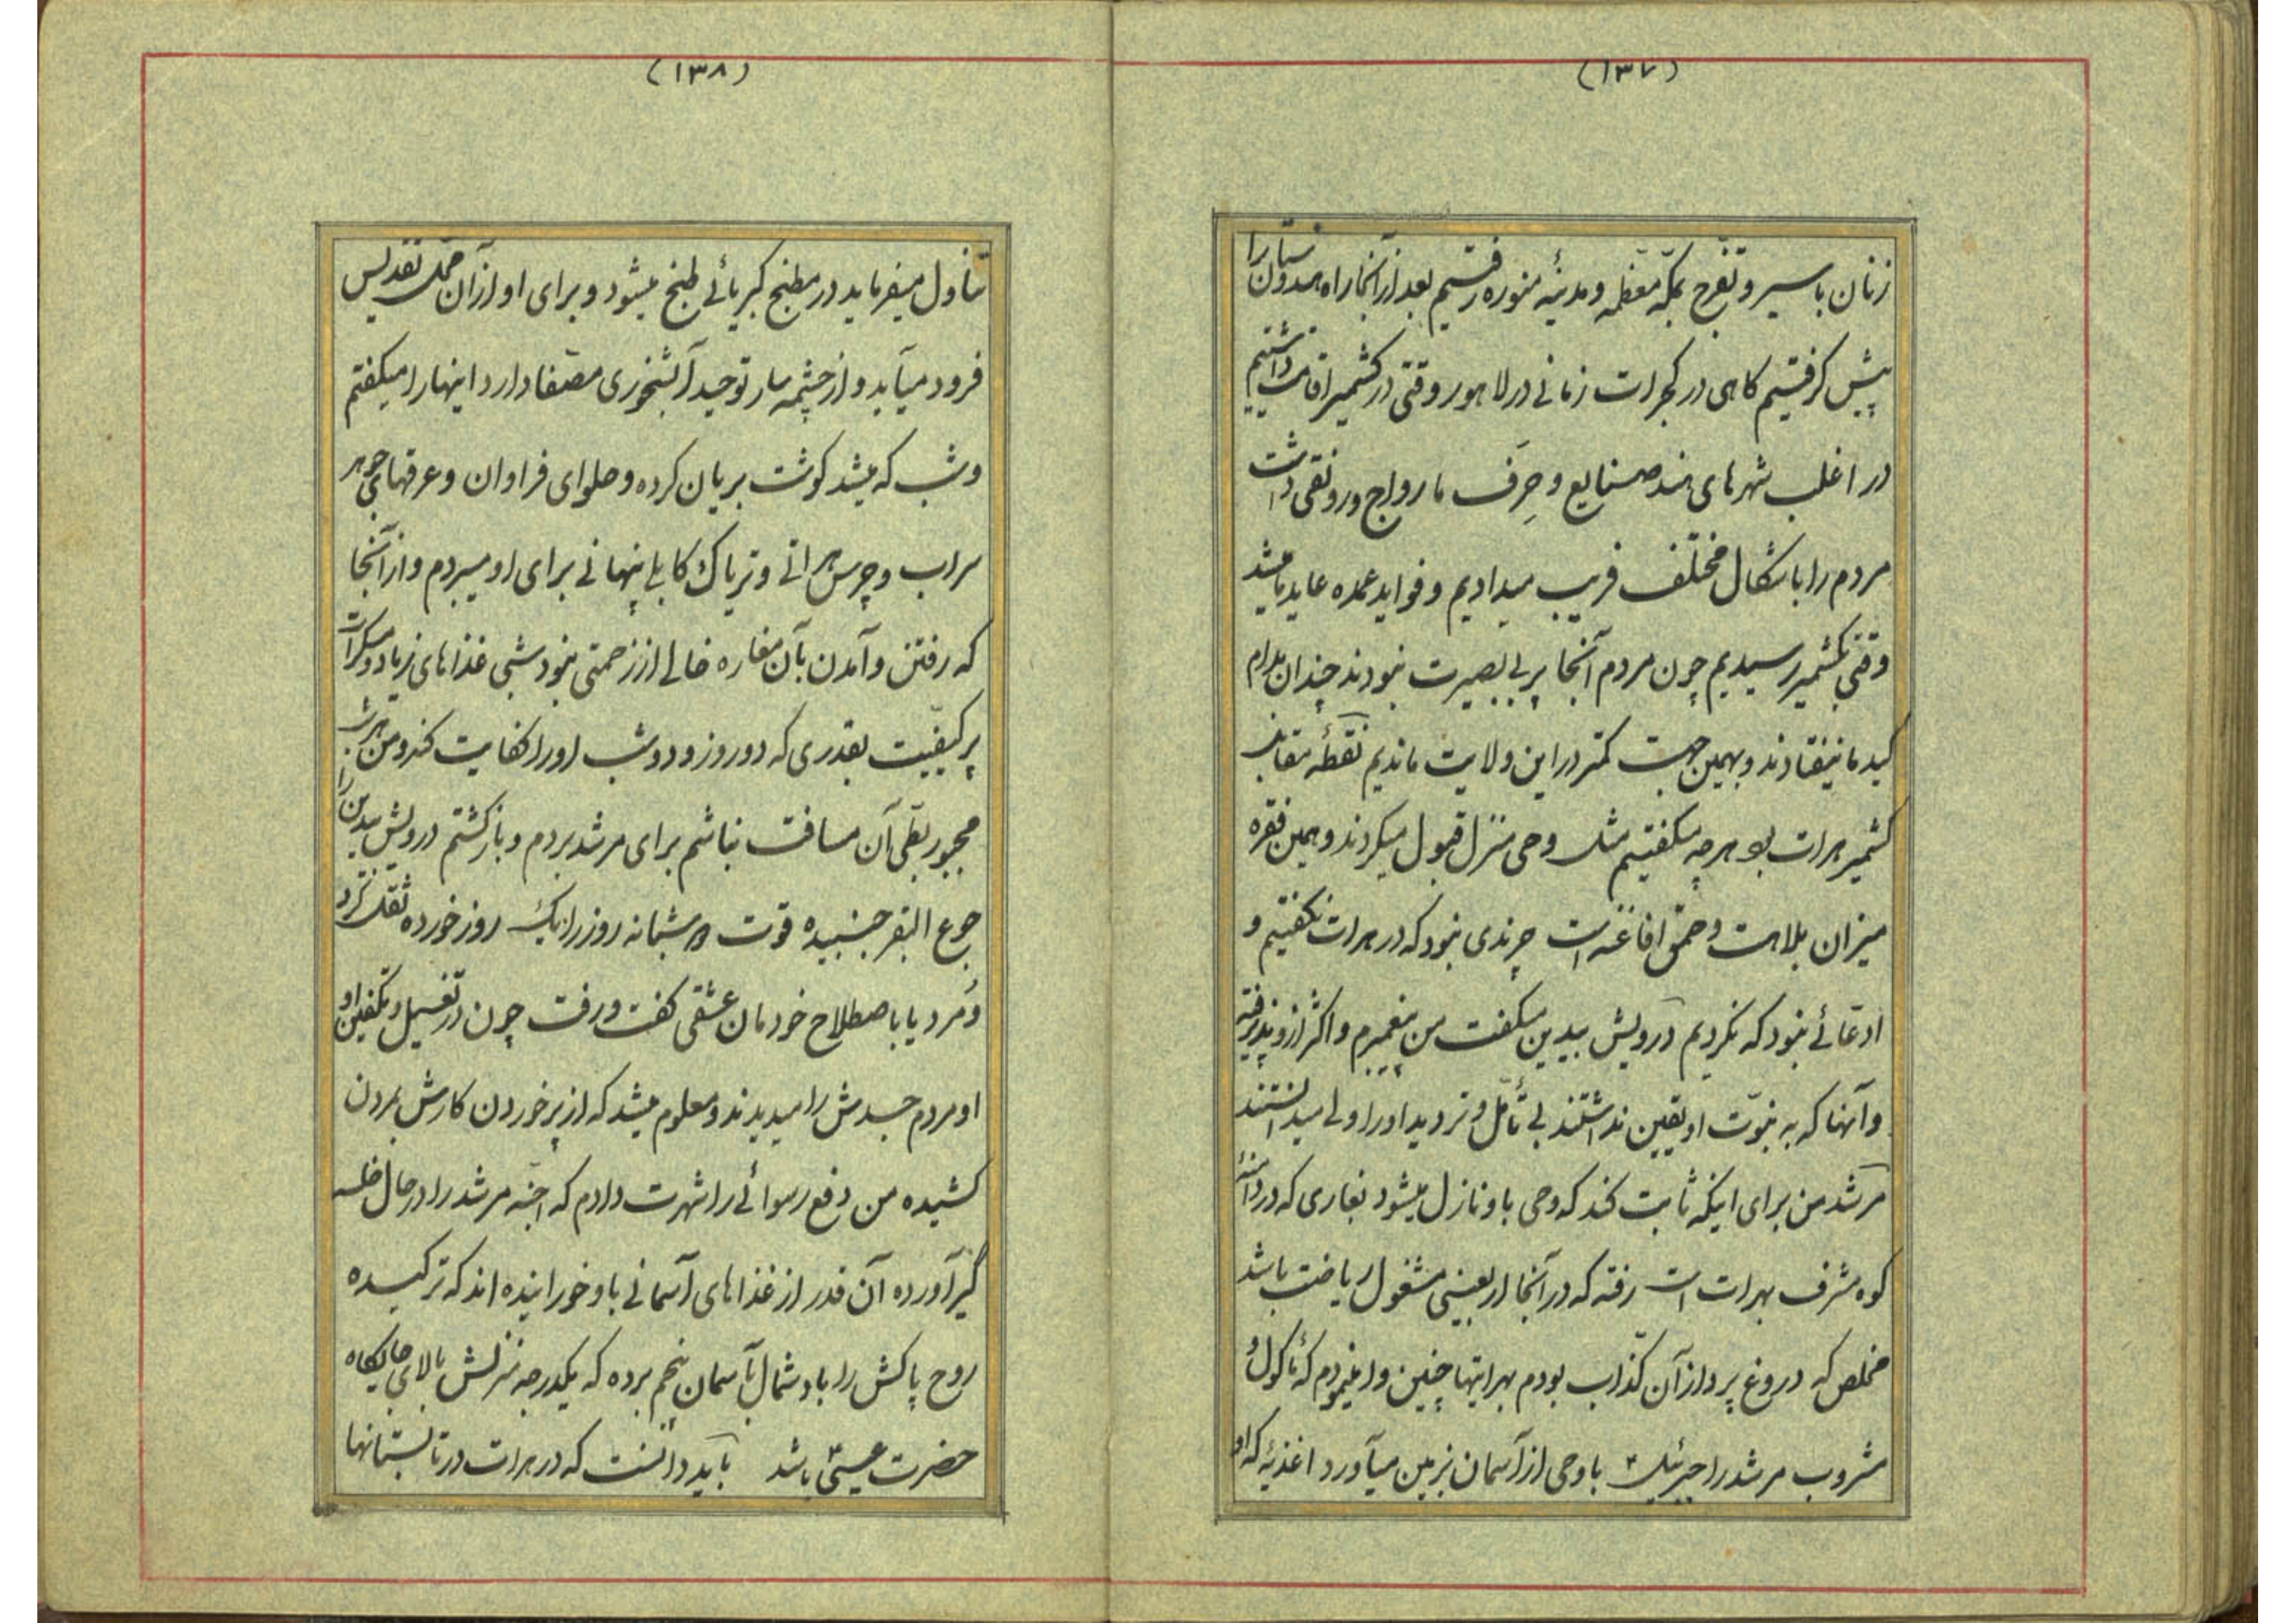 (۱۳۷)
زنان با سیر و تفرج بمکّه معظمه و مدینهٔ منوره رفتیم بعد از آنجا راه هندوستان را
پیش گرفتیم گاهی در گجرات زمانی در لاهور وقتی در کشمیر اقامت داشتیم
در اغلب شهرهای هند صنایع و حِرَف ما رواج و رونقی داشت
مردم را باشکال مختلف فریب میدادیم و فواید عمده عاید ما میشد
وقتی بکشمیر رسیدیم چون مردم آنجا پر بی بصیرت نبودند چندان بدام
کید ما نیفتادند و بهمین جهت کمتر در این ولایت ماندیم نقطهٔ مقابل
کشمیر هرات بود هرچه میگفتیم مثل وحی منزل قبول میکردند و همین فقره
میزان بلاهت و حمق افاغنه است چرندی نبود که در هرات نگفتیم و
ادعائی نبود که نکردیم درویش بیدین میگفت من پیغمبرم و اکثر ازو پذیرفته
و آنها که به نبوّت او یقین نداشتند بی تأمّل و تردید او را ولی میدانستند
مرشد من برای اینکه ثابت کند که وحی باو نازل میشود بغاری که در دامنهٔ
کوه مشرف بهرات است رفته که در آنجا اربعینی مشغول ریاضت باشد
مخلص که دروغ پرداز آن کذّاب بودم بهراتیها چنین وا مینمودم که مأکول و
مشروب مرشد را جبرئیل باوحی از آسمان بزمین میآورد اغذیهٔ که او
(۱۳۸)
تناول میفرماید در مطبخ کبریائی طبخ میشود و برای او از آن محل تقدیس
فرود میآید و از چشمه سار توحید آبشخوری مصفّا دارد اینها را میگفتم
و شب که میشد گوشت بریان کرده و حلوای فراوان و عرقهای جوهر
سراب و چرس هراتی و تریاک کابلی پنهانی برای او میبردم و از آنجا
که رفتن و آمدن بآن مغاره خالی از زحمتی نبود شبی غذاهای زیاد و مسکرات
پر کیفیّت بقدری که دو روز و دو شب او را کفایت کند و من هر شب
مجبور بطی آن مسافت نباشم برای مرشد بردم و بازگشتم درویش بیدین را
جوع البقر جنبیده قوت دو شبانه روز را بیک روز خورده ثقل کرد
و مرد یا باصطلاح خودمان عشقی گفت و رفت چون در تغسیل و تکفین او
او مردم جسدش را میدیدند و معلوم میشد که از پر خوردن کارش بمردن
کشیده من دفع رسوائی را شهرت دادم که اجنّه مرشد را در حال خلسه
گیر آورده آن قدر از غذاهای آسمانی باو خورانیده اند که ترکیده
روح پاکش را باد شمال بآسمان پنجم برده که یکدرجه منزلش بالای جایگاه
حضرت عیسی باشد باید دانست که در هرات در تابستانها